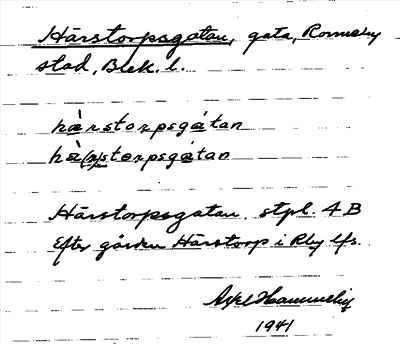 Härstorpsgatan, gata, Ronneby
stad, Blek. l.
härstorpsgátan
hä̀(r)storpsgatan
Härstorpsgatan. stpl. 4 B
Efter gården Härstorp i Rby lfs.
Axel
1941